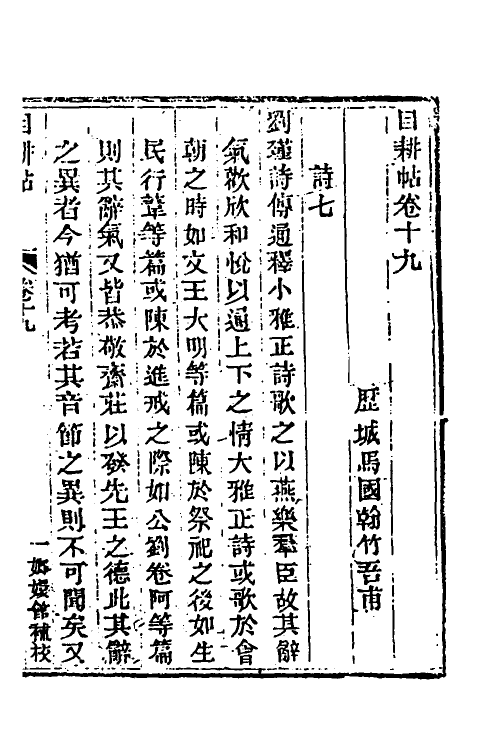 目耕帖卷十九
歷城馬國翰竹吾甫
詩七
劉瑾詩傳通釋小雅正詩歌之以燕樂羣臣故其辭
氣歡欣和悅以通上下之情大雅正詩或歌於會
朝之時如文王大明等篇或陳於祭祀之後如生
民行葦等篇或陳於進戒之際如公劉卷阿等篇
則其辭氣又皆恭敬齋莊以發先王之德此其辭
之異者今猶可考若其音節之異則不可聞矣又
目耕帖
卷十九
一
嫏嬛館補校